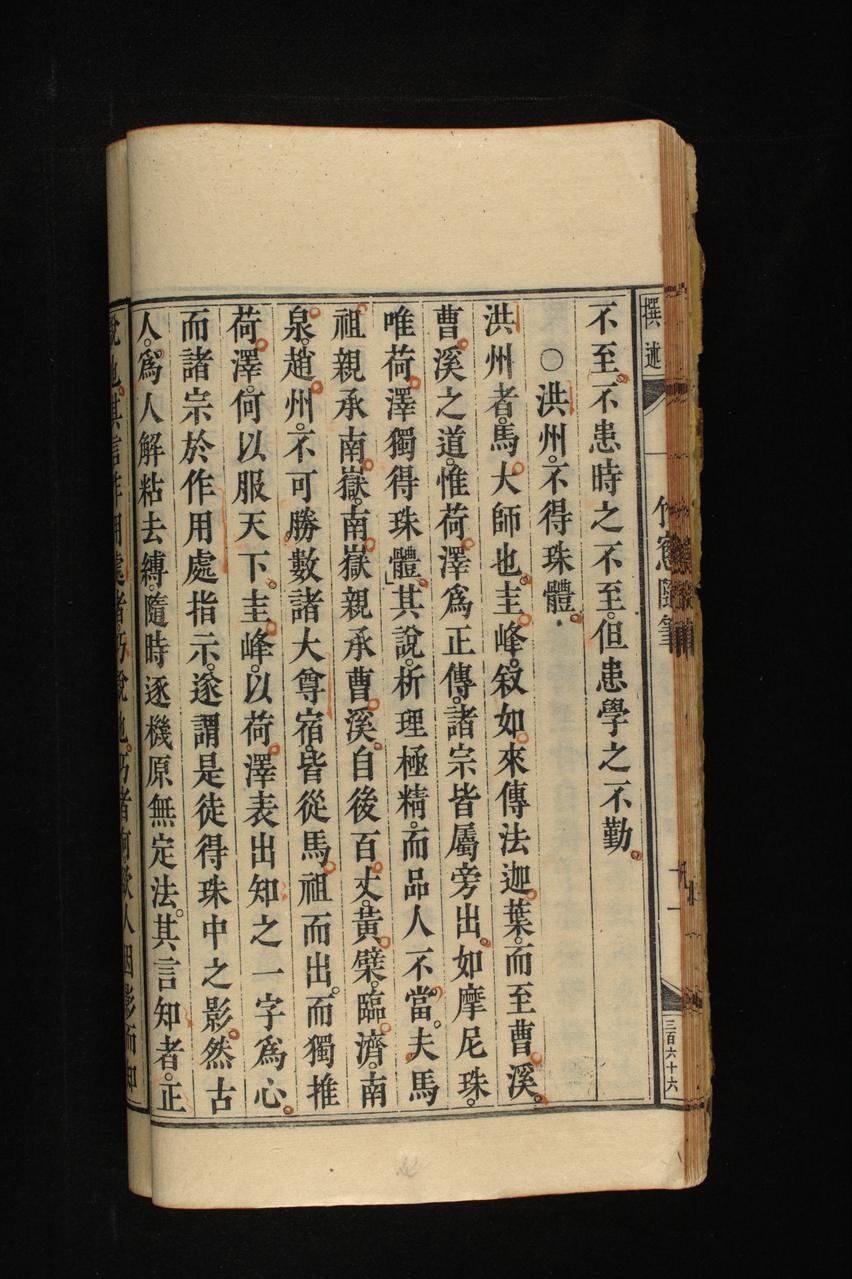 撰述
竹窻隨筆
三百六十六
不至。不患時之不至。但患學之不勤。
○洪州。不得珠體。
洪州者。馬大師也。圭峰。叙如來傳法迦葉。而至曹溪。
曹溪之道。惟荷澤爲正傳。諸宗皆屬旁出。如摩尼珠。
唯荷澤獨得珠體。其說。析理極精。而品人不當。夫馬
祖親承南嶽。南嶽親承曹溪。自後百丈。黃檗。臨濟。南
泉。趙州。不可勝數諸大尊宿。皆從馬祖而出。而獨推
荷澤。何以服天下。圭峰。以荷澤表出知之一字爲心。
而諸宗於作用處指示。遂謂是徒得珠中之影。然古
人。爲人解粘去縛。隨時逐機原無定法。其言知者。正
說也。其言作用處者。巧說也。巧者何欲人因影而知